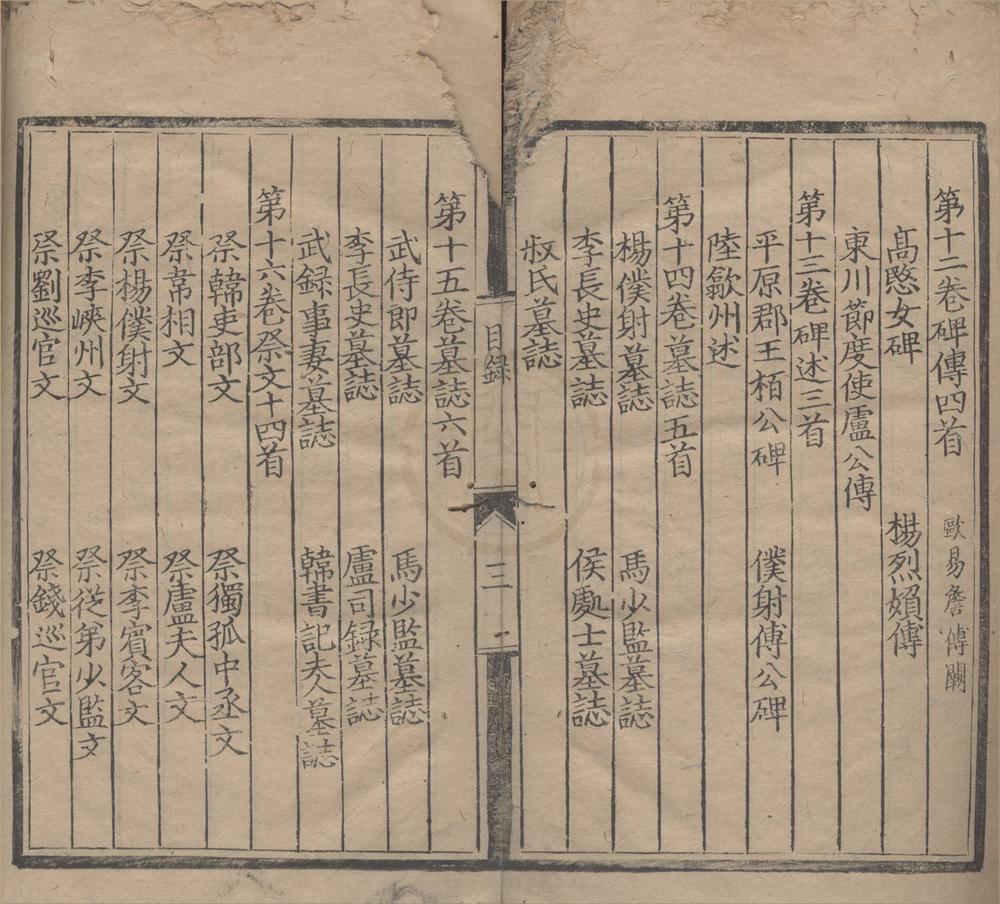 第十二卷碑傳四首　歐昜詹傳闕
高愍女碑　楊烈嬪傳
東川節度使盧公傳
第十三卷碑述三首
平原郡王栢公碑　僕射傅公碑
陸歙州述
第十四卷墓誌五首
楊僕射墓誌　馬少監墓誌
李長史墓誌　侯處士墓誌
叔氏墓誌
目録
三
二
第十五卷墓誌六首
武侍郎墓誌　馬少監墓誌
李長史墓誌　盧司録墓誌
武録事妻墓誌　韓書記夫人墓誌
第十六卷祭文十四首
祭韓吏部文　祭獨孤中丞文
祭韋相文　祭盧夫人文
祭楊僕射文　祭李賓客文
祭李峽州文　祭從弟少監文
祭劉巡官文　祭錢巡官文